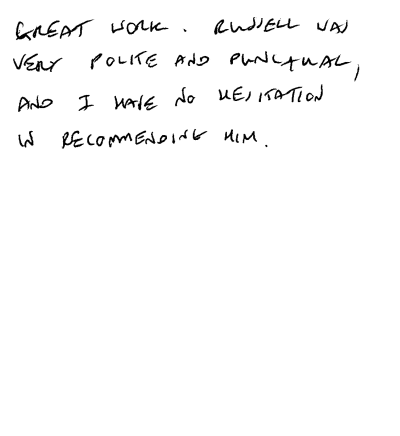 GREAT WORK. RUSSELL WAS
VERY POLITE AND PUNCTUAL,
AND I HAVE NO HESITATION
IN RECOMMENDING HIM.